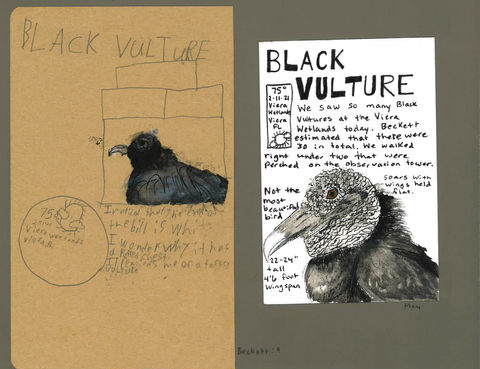 BLACK VULTURE
75°
Viera wetlands
Viera, FL
I noticed that the end of
the bill is whi
I wonder why it has
a
It reminds me of a turkey
vulture
BLACK
VULTURE
75°
2-11-21
Viera
Wetlands
Viera
FL
We saw so many Black
Vultures at the Viera
Wetlands today. Beckett
estimated that there were
30 in total. We walked
right under two that were
perched on the observation tower.
Soars with
wings held
flat.
Not the
most
beautiful
bird
22-24"
tall
4'6 foot
wingspan
Beckett: 9